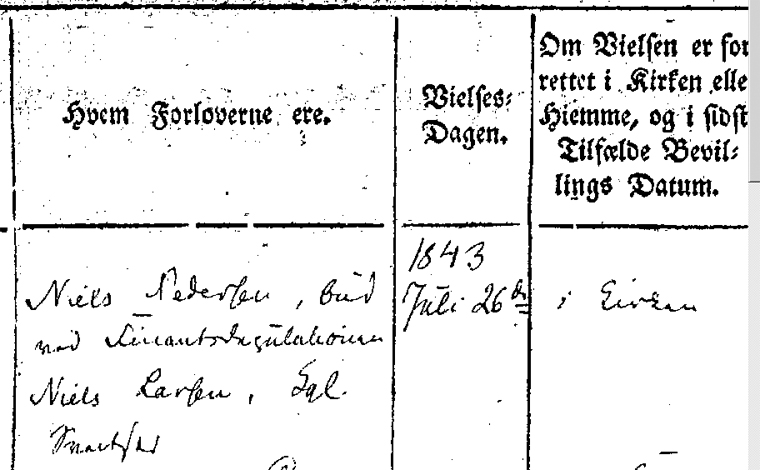 Hvem Forloverne ere.
Vielses-
Dagen.
Om Vielsen er for
rettet i Kirken elle
Hiemme, og i sidst
Tilfælde Bevil-
lings Datum.
Niels Pedersen, bud
ved Finantsdeputationen
Niels Larsen, Kgl.
1843
Juli 26de
i Kirken